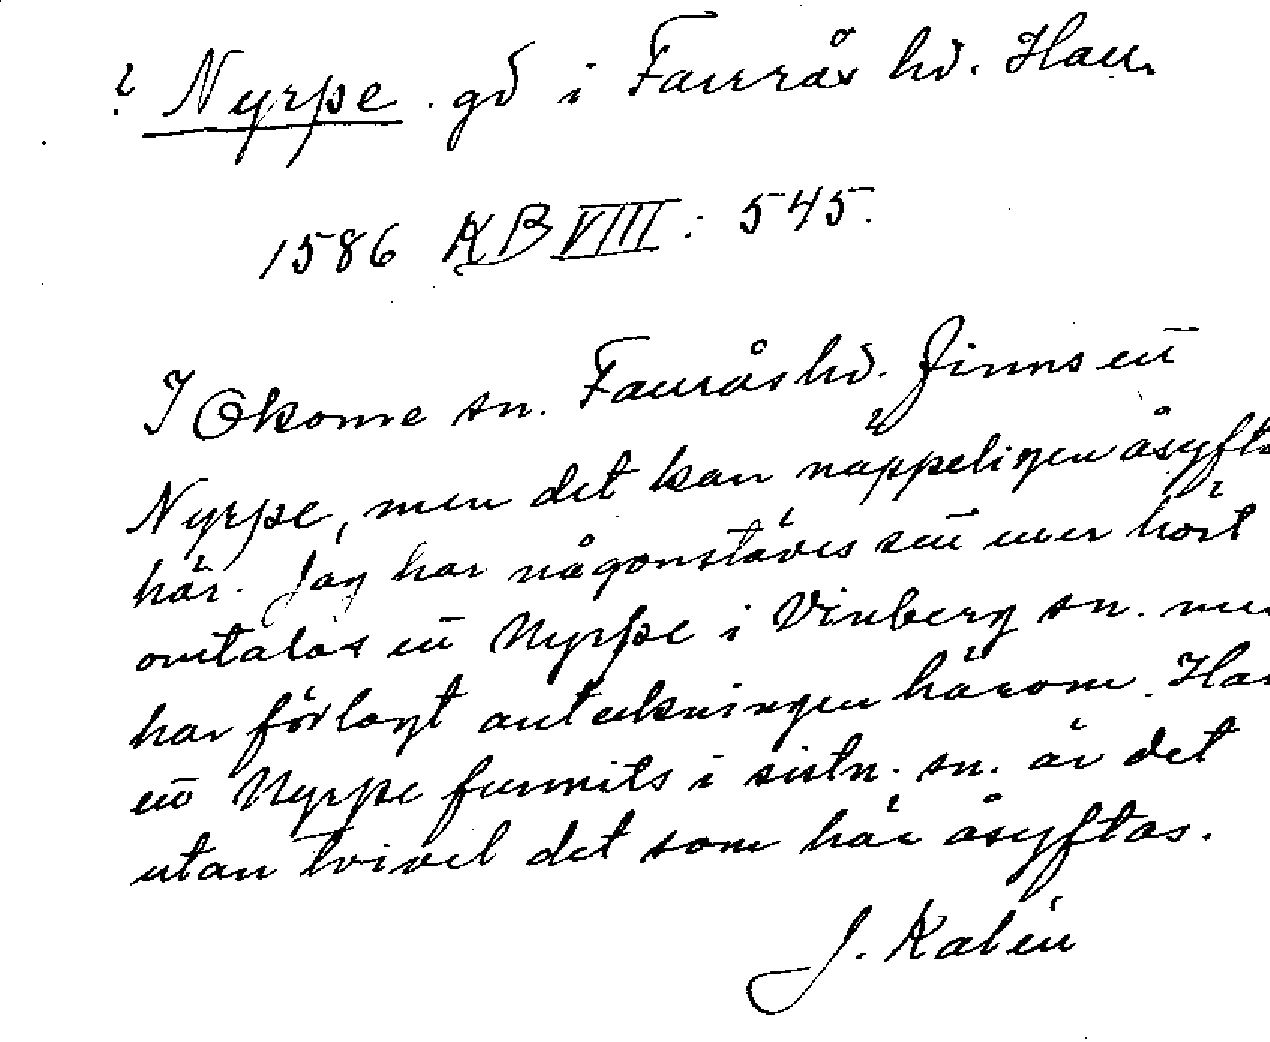 ? Nyrpe. gd i Faurås hd. Hall.
1586 KB VIII: 545.
I Okome sn. Faurås hd. finns ett
Nyrpe, men det kan näppeligen åsyfta
här. Jag har någonstädes sett eller hört
omtalas ett Nyrpe i Vinberg sn. men
har förlagt anteckningen härom. Har
ett Nyrpe funnits i sistn. sn. är det
utan tvivel det som här åsyftas.
J. Kalén